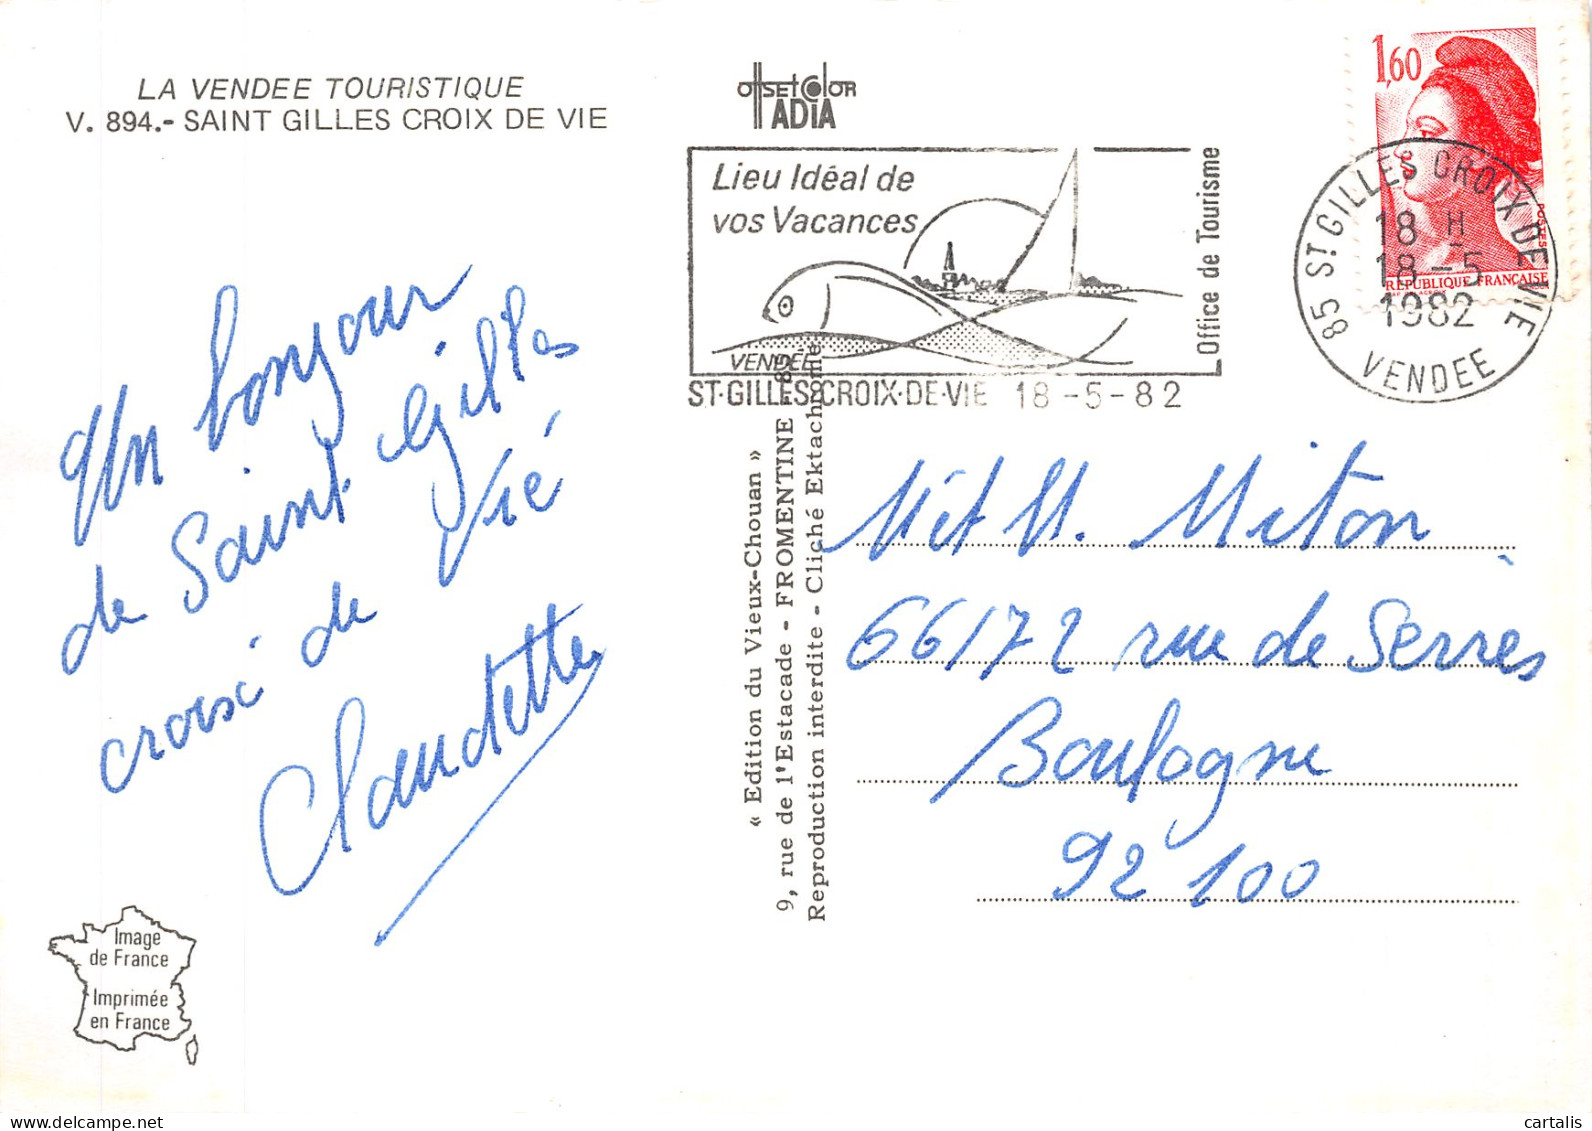 LA VENDEE TOURISTIQUE
V. 894.- SAINT GILLES CROIX DE VIE
Un bonjour
de Saint Gilles
croisé de Vié
Claudette
Image
de France
Imprimée
en France
OffSETColOR
ADIA
Lieu Idéal de
vos Vacances
VENDEE
Office de Tourisme
ST-GILLES-CROIX-DE-VIE 18-5-82
1,60
POSTES
REPUBLIQUE FRANÇAISE
85 ST GILLES CROIX DE VIE
18 H
18-5
1982
VENDEE
« Edition du Vieux-Chouan »
9, rue de l'Estacade - FROMENTINE - 85
Reproduction interdite - Cliché Ektachrome
M. Miton
66/72 rue de Serrès
Boulogne
92 100
cartalis
www.delcampe.net